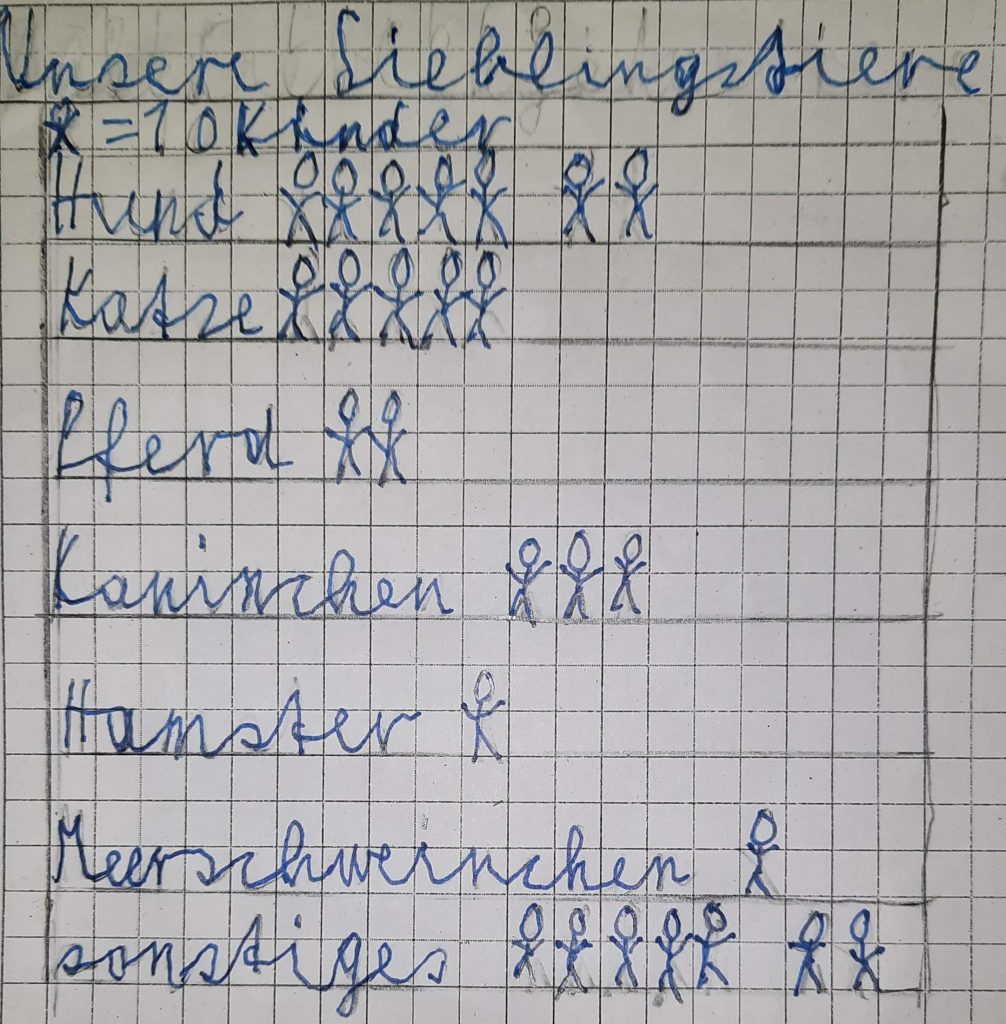 Unsere Lieblingstiere
= 10 Kinder
Hund
Katze
Pferd
Kaninchen
Hamster
Meerschweinchen
sonstiges